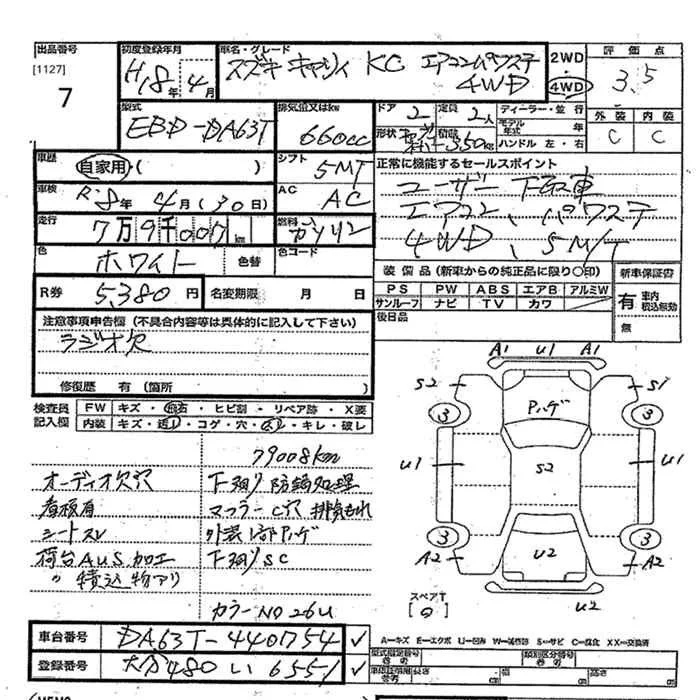 出品番号
[1127]
7
初度登録年月
H.8年 4月
車名・グレード
スズキ キャリィ KC エアコンパワステ
4WD
2WD
4WD
評価点
3.5
外装 内装
C C
型式
EBD-DA63T
排気量又はkw
660cc
ドア 2
定員 2人
形状
積載 350kg
ディーラー・並行
モデル年式 年
ハンドル 左・右
車歴
自家用・( )
シフト
5MT
車検
R.8年 4月(30日)
AC
AC
走行
7万9千007km
燃料
ガソリン
色
ホワイト
色替
色コード
R券 5,380円
名変期限 月 日
正常に機能するセールスポイント
ユーザー下取車
エアコン、パワステ
4WD、5M/T
装備品(新車からの純正品に限り○印)
PS PW ABS エアB アルミW
サンルーフ ナビ TV カワ
後日品
新車保証書
有 車内積込無効
無
注意事項申告欄(不具合内容等は具体的に記入して下さい)
ラジオ欠
修復歴 有(箇所
検査員記入欄
FW キズ・飛石・ヒビ割・リペア跡・X要
内装 キズ・汚レ・コゲ・穴・スレ・キレ・破レ
79008km
オーディオ欠穴 下廻り防錆処理
看板有 マフラーC穴 排気もれ
シートスレ 外装1部ハゲ
荷台AUS.加工 下廻りSC
〃 積込物アリ
カラーNO 26U
車台番号 DA63T-440754 ✓
登録番号 480 い 6551 ✓
A1 U1 A1
S2 S1
Pハゲ
3 3
U1 S2 U1
3 3
A2 U2 A2
U2
スペアT
A=キズ E=エクボ U=凹み W=補修跡 S=サビ C=腐化 XX=交換済
型式指定番号
類別区分番号
長さ cm
幅 cm
高さ cm